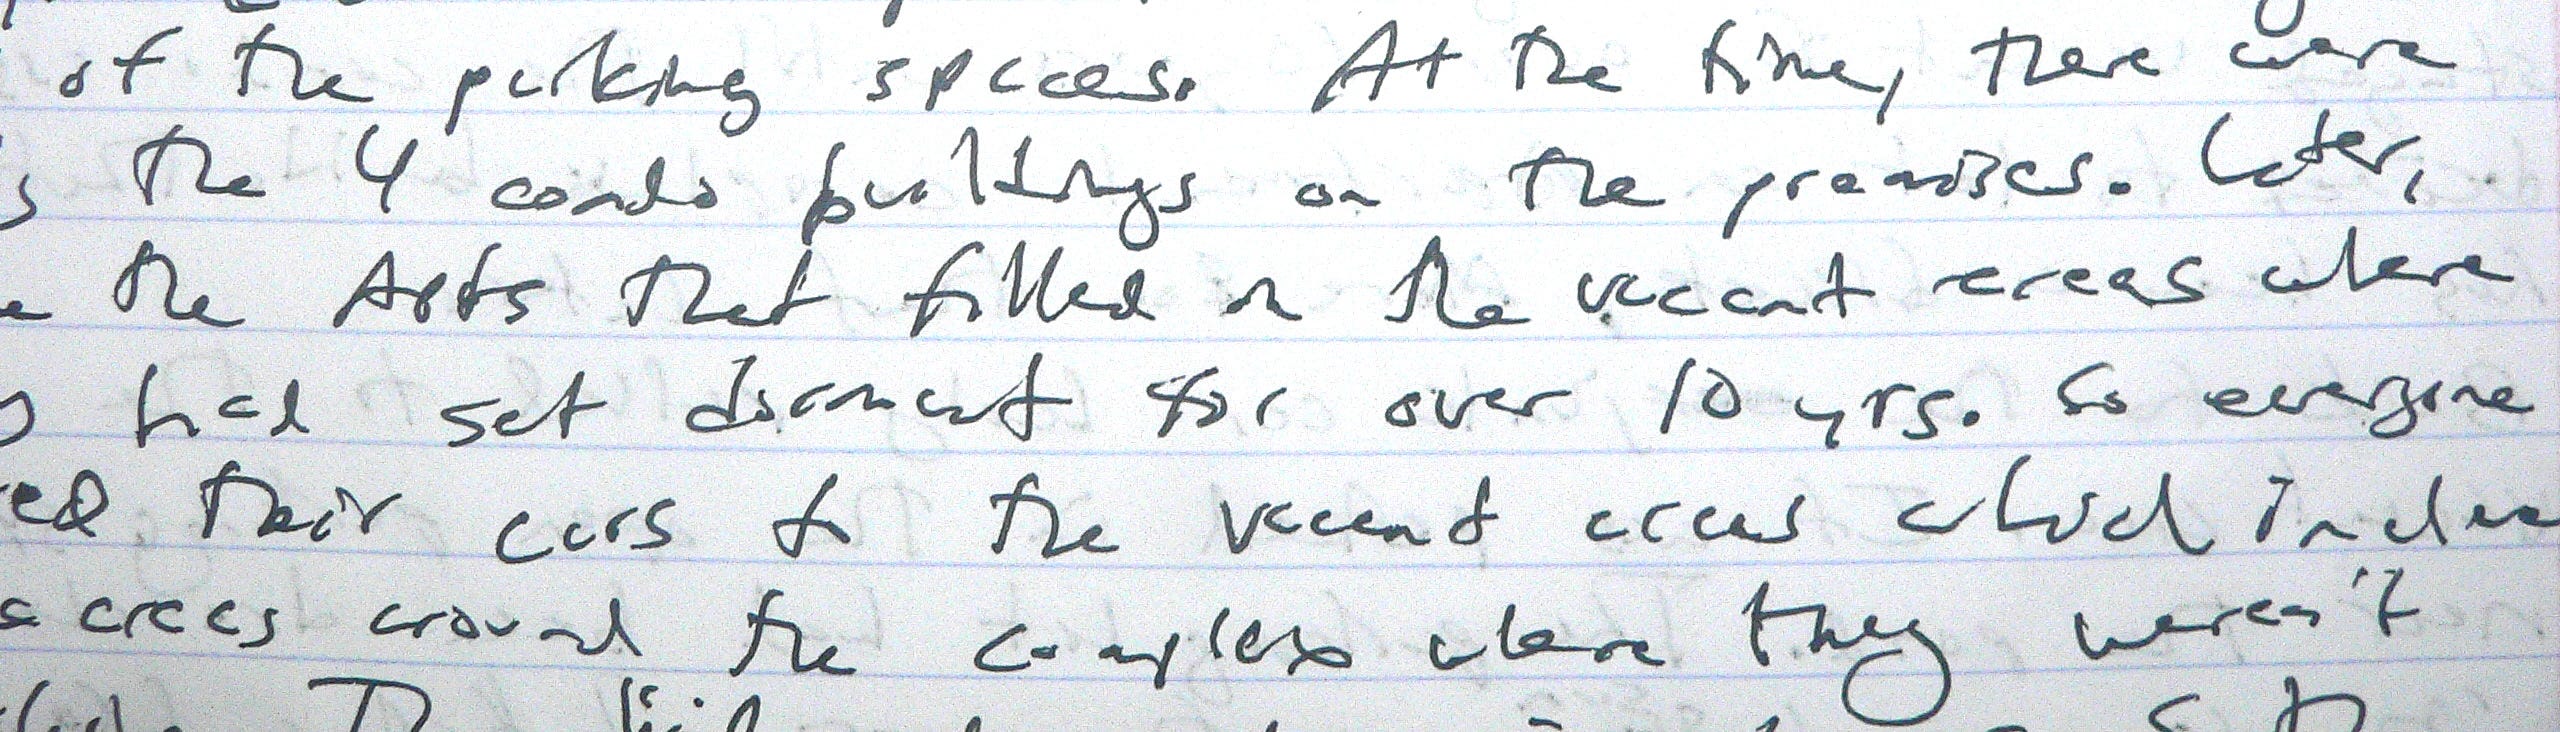 of the parking spaces. At the time, there were
the 4 condo buildings on the premises. Later,
the Apts that filled in the vacant areas where
had set dormant for over 10 yrs. So everyone
their cars to the vacant areas which
areas around the complex where they weren't